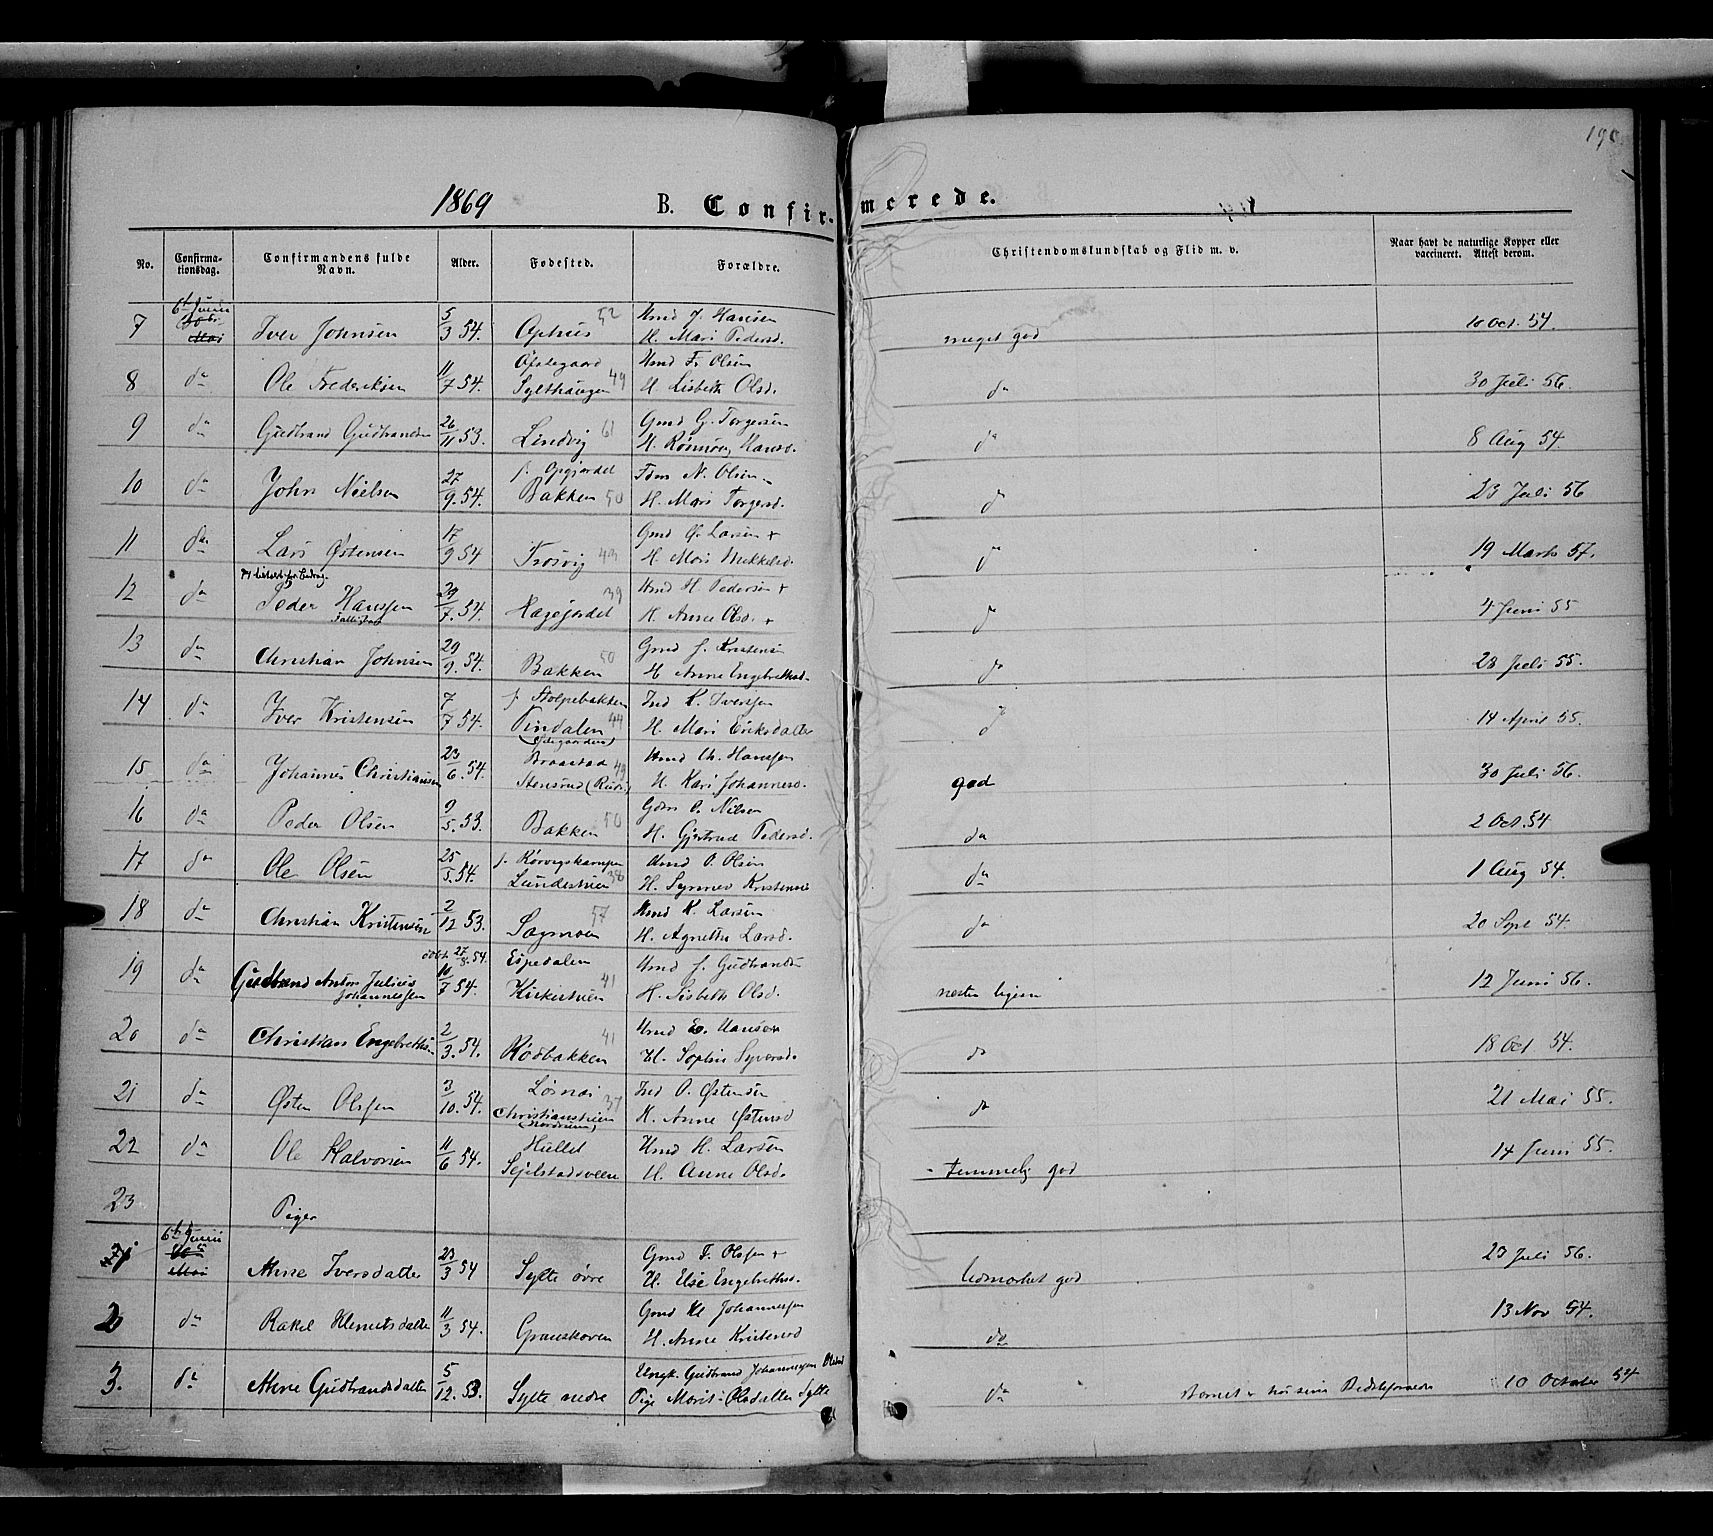 190
1869 B. Confirmerede.
No. Confirmationsdag. Confirmandens fulde Navn. Alder. Fødested. Forældre. Christendomskundskab og Flid m. v. Naar havt de naturlige Kopper eller vaccineret. Attest derom.
7 6te Junii Mai Iver Johnsen 5/3 54. Ophus 52 Hmd J. Hansen H. Mari Pedersd. meget god 10 Oct. 54.
8 do Ole Frederiksen 11/7 54. Sylthaugen 49 Hmd Fr. Olsen H. Lisbeth Olsd. do 30 Juli 56.
9 do Gudbrand Gudbrandsen 26/11 53. Lindvig 61 Gmd G. Torgersen H. Rønnøv Hansd. do 8 Aug 54.
10 do John Nielsen 27/9. 54. f. Opgjordet Bakken 50 N. Olsen H. Mari Torgersd. do 23 Juli 56
11 do Lars Østensen 17/9 54 Frosvig 43 Gmd Ø. Larsen + H. Mari Mikkelsd. do 19 Marts 57.
12 do Peder Hanssen 29/7. 54. Hagejordet 39 Hmd H. Pedersen + H. Anne Olsd. + do 4 Juni 55
13 do Christian Johnsen 29/9. 54. Bakken 50 Gmd J. Kristensen H. Anne Engebretsd. do 28 Juli 55.
14 do Iver Kristensen 7/7 54. f. Stolpebakken Tindalen 44 Ind K. Iversen H. Mari Eriksdatter do 14 April 55.
15 do Johannes Christiansen 23/6. 54. Braastad Stensrud (Ruds) 49 Hmd Ch. Hanssen H. Kari Johannesd. god 30 Juli 56.
16 do Peder Olsen 9/5. 53. Bakken 50 O. Nilsen H. Gjertrud Pedersd. do 2 Oct. 54
17 do Ole Olsen 25/5. 54. Lundestuen 38 Hmd O. Olsen H. Synnev Kristensd. do 1 Aug 54.
18 do Christian Kristensen 2/12 53. Sagmoen 57 Hmd K. Larsen H. Agnethe Larsd. do 20 Sept 54.
19 do Gudbrand Anton Julius Johannessen døbt 27/8. 54. 10/7 54. Espedalen Kirkestuen 41 Hmd J. Gudbrandsen H. Lisbeth Olsd. nesten ligesaa 12 Juni 56.
20 do Christian Engebretsen 2/3. 54. Rødbakken 41 Hmd E. Hansen H. Sophie Syversd. do 18 Oct 54.
21 do Østen Olssen 3/10. 54. Løsnæs Christiansstuen 37 Ind O. Østensen H. Anne Østensd do 21 Mai 55.
22 do Ole Halvorsen 11/6 54. Hullet Sejelstadsveen Hmd H. Larsen H. Anne Olsd. temmelig god 14 Juni 55.
23 Piger
1 6te Junii Mai Anne Iversdatter 23/3 54 Sylte øvre Gmd I. Olssen + H. Else Engebretsd. Udmærket god 23 Juli 56.
2 do Rakel Klemetsdatter 11/3 54. Granskoven Gmd Kl Johannessen H. Anne Kristensd do 13 Nov 54.
3. do Anne Gudbrandsdatter 5/12. 53. Sylte nedre Ungk. Gudbrand Johannessen Olstad Pige Marit Olsdatter Sylte do Barnet er hos sine Bedsteforældre 10 October 54